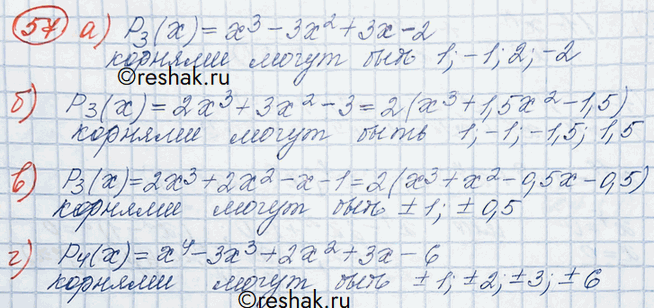 57 а) P₃(x) = x³ - 3x² + 3x - 2
корнями могут быть 1; -1; 2; -2
©reshak.ru
б) P₃(x) = 2x³ + 3x² - 3 = 2(x³ + 1,5x² - 1,5)
корнями могут быть 1; -1; -1,5; 1,5
в) P₃(x) = 2x³ + 2x² - x - 1 = 2(x³ + x² - 0,5x - 0,5)
корнями могут быть ± 1; ± 0,5
г) P₄(x) = x⁴ - 3x³ + 2x² + 3x - 6
корнями могут быть ± 1; ± 2; ± 3; ± 6
©reshak.ru